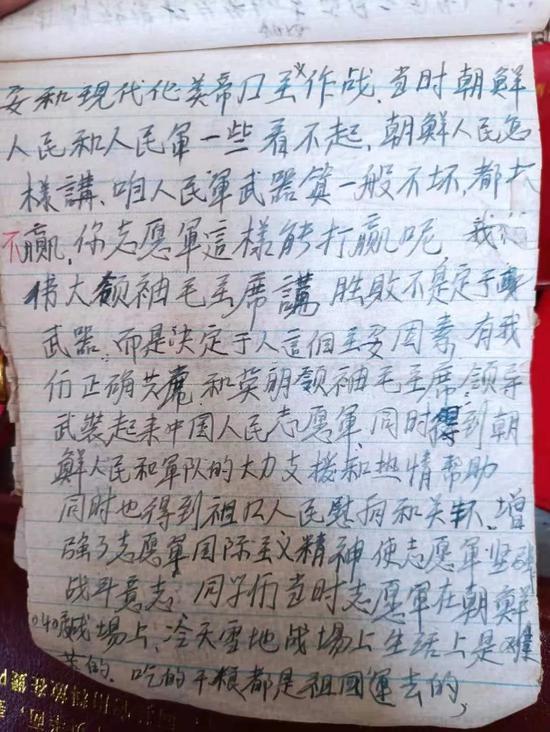 要和現代化美帝囗主义作战，当时朝鮮
人民和人民軍一些看不起，朝鮮人民怎
樣講，咱人民軍武器算一般不坏，都打
不贏，你志愿軍這樣能打贏呢，我們
偉大领袖毛主席講 胜敗不是定于
武器，而是决定于人這個主要因素，有我
们正确共 席和英明領袖毛主席領导
武裝起来中国人民志愿軍，同时得到朝
鮮人民和軍队的大力支援和热情帮助
同时也得到祖囗人民慰问和关 ，增
強了志愿軍国际主义精神 使志愿軍坚
战斗意志，同学们当时志愿軍在朝鮮
040度战場上，冷天雪地战场上生活上是难
苦的，吃的干粮都是祖囯運去的，